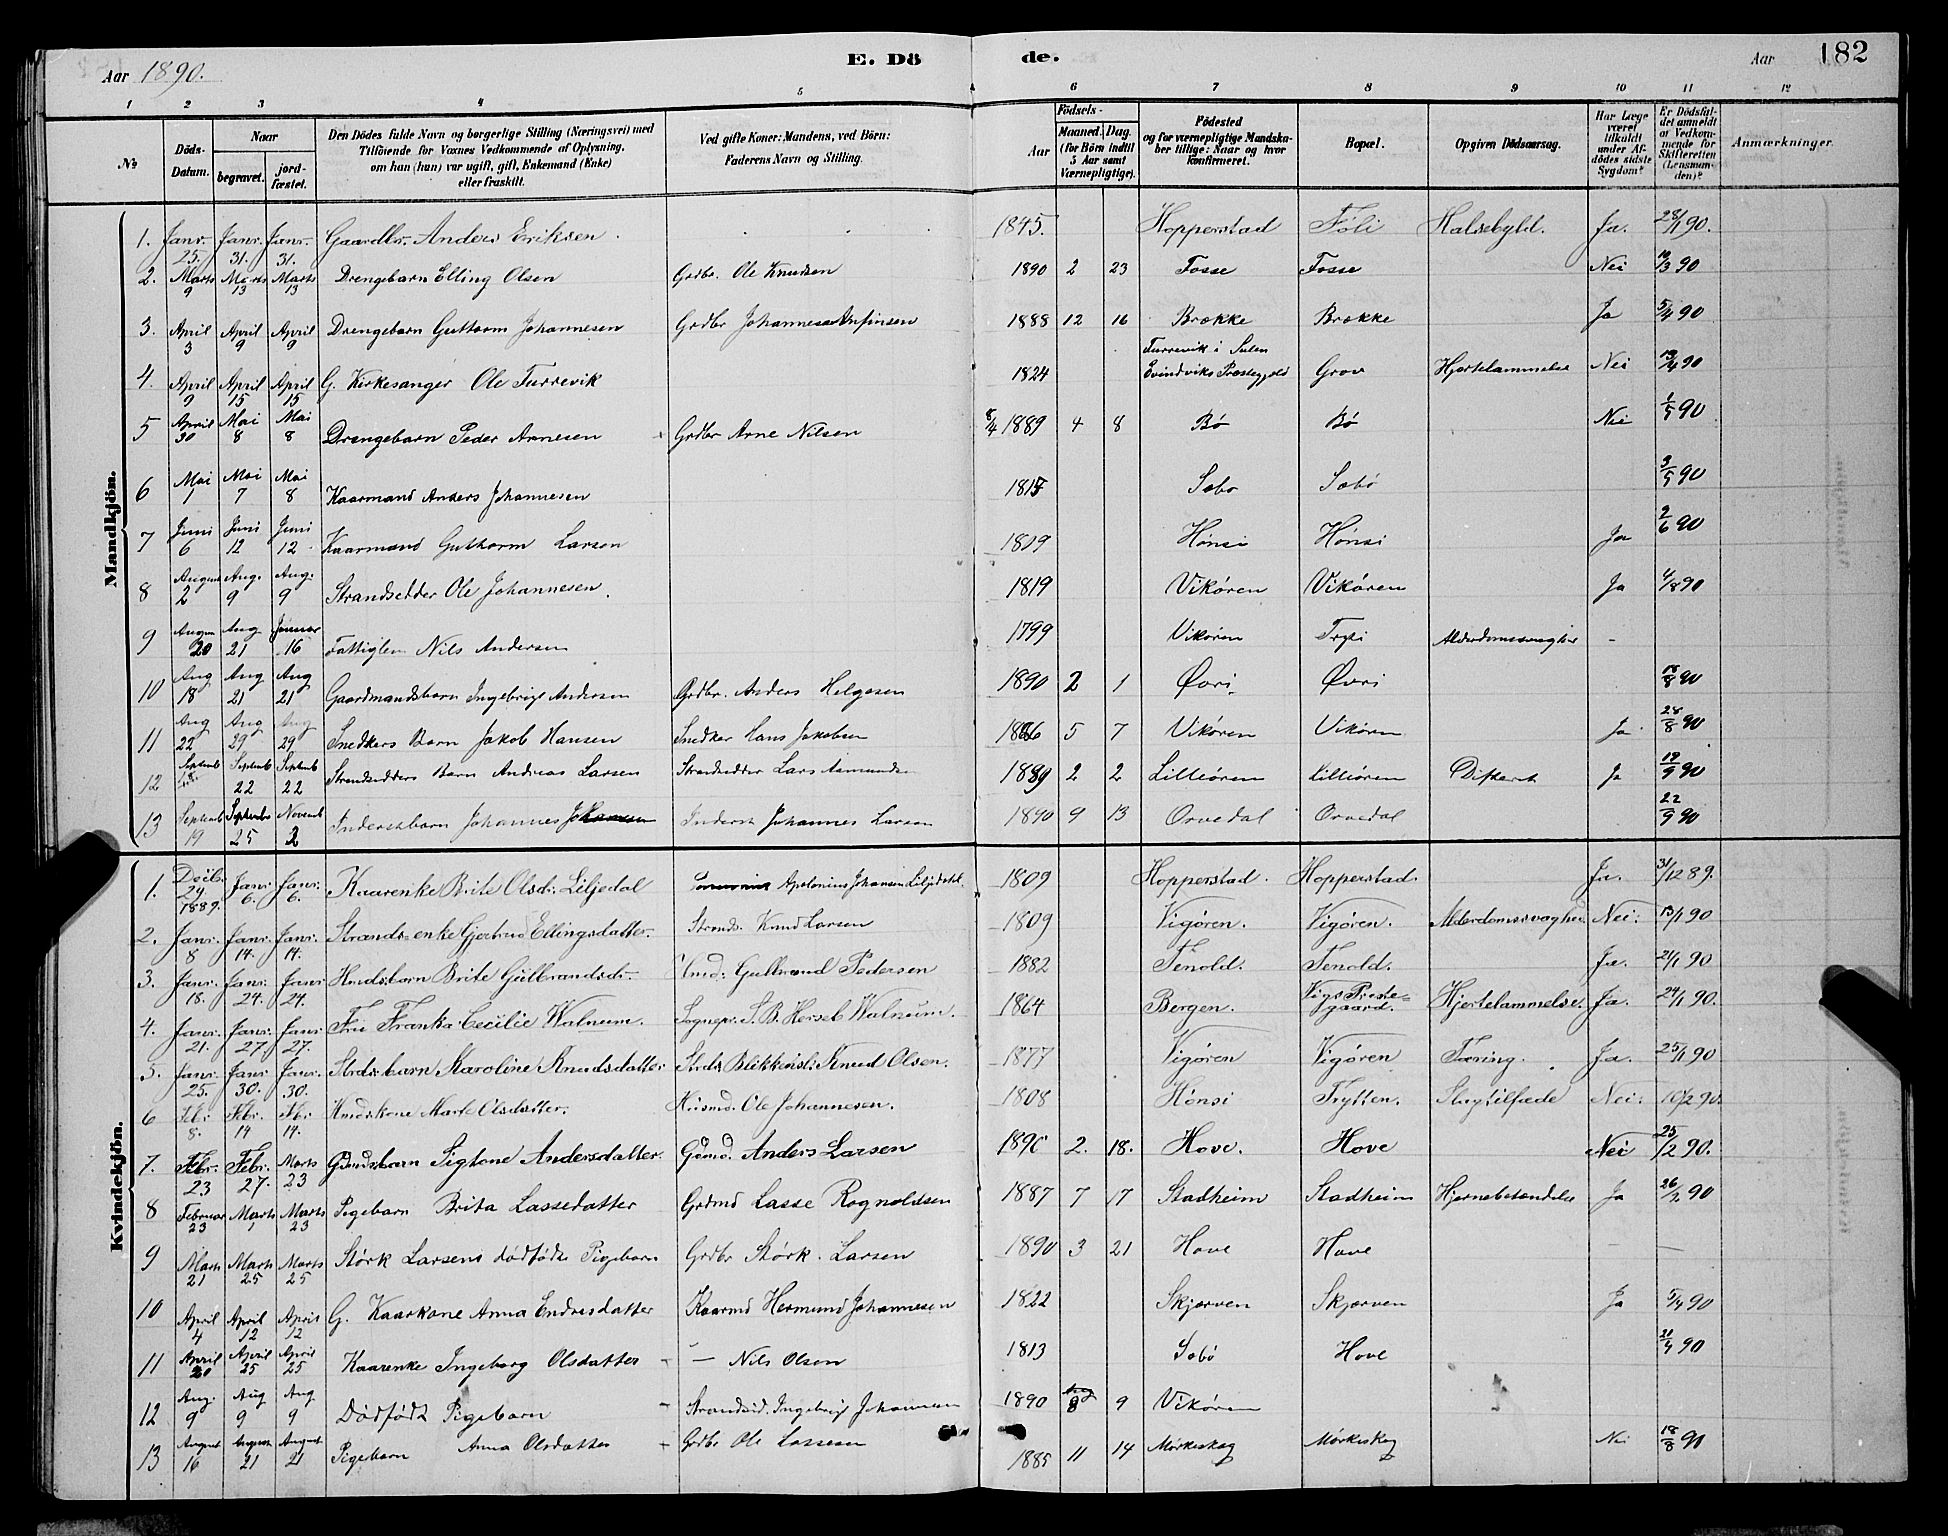 Aar 1890. E. Dö de. Aar 182
1 2 3 4 5 6 7 8 9 10 11 12
№
Döds-Datum.
Naar
begravet.
jord-fæstet.
Den Dödes fulde Navn og borgerlige Stilling (Næringsvei) med
Tilföiende for Voxnes Vedkommende af Oplysning,
om han (hun) var ugift, gift, Enkemand (Enke)
eller fraskilt.
Ved gifte Koner: Mandens, ved Börn:
Faderens Navn og Stilling.
Födsels-
Aar
Maaned. Dag.
(for Börn indtil
5 Aar samt
Værnepligtige).
Födested
og for værnepligtige Mandska-
ber tillige: Naar og hvor
konfirmeret.
Bopæl.
Opgiven Dödsaarsag.
Har Læge
været
tilkaldt
under Af-
dödes sidste
Sygdom?
Er Dödsfal-
det anmeldt
af Vedkom-
mende for
Skifteretten
(Lensman-
den)?
Anmærkninger.
Mandkjön.
1. Janr. 25. Janr. 31. Janr. 31. Gaardbr. Anders Eriksen. 1845. Hopperstad Föli Halsebyld. Ja. 28/1 90.
2. Marts 9 Marts 13 Marts 13 Drengebarn Elling Olsen Grdbr. Ole Knudsen 1890 2 23 Fosse Fosse Nei 10/3 90
3. April 3 April 9 April 9 Drengebarn Guttorm Johannesen Grdbr Johannes Anfinsen 1888 12 16 Brække Brække Ja 5/4 90
4. April 9 April 15 April 15 G. Kirkesanger Ole Turrevik 1824 Turrevik i Sulen Evindviks Præstegjeld Grov Hjertelammelse Nei 13/4 90
5 April 30 Mai 8 Mai 8 Drengebarn Peder Arnesen Grdbr Arne Nilsen 8/4 1889 4 8 Bö Bö Nei 1/5 90
6 Mai 1 Mai 7 Mai 8 Kaarmand Anders Johannesen Sæbo Sæbö 3/5 90
7 Juni 6 Juni 12 Juni 12 Kaarmand Guttorm Larsen 1819 Hönsi Hönsi Ja 2/6 90
8 August 2 Aug. 9 Aug. 9 Strandsedder Ole Johannesen. 1819 Vikören Vikören Ja 4/8 90
9 Augu 20 Aug 21 Januar 16 Fattiglem Nils Andersen 1799 Vikören Tryti Alderdomssvaghed -
10 Aug 18 Aug 21 Aug 21 Gaardmandsbarn Ingebrigt Andersen Grdbr. Anders Helgesen 1890 2 1 Övri Övri 18/8 90
11 Aug 22 Aug 29 Aug 29 Snedkers Barn Jakob Hansen Snedker Hans Jakobsen 5 7 Vikören Vikören Ja 28/8 90
12 Septemb 18 Septemb 22 Septemb 22 Strandsedders Barn Andreas Larsen Strandsedder Lars Asmundsen 1889 2 2 Lilleören Lilleören Difterit Ja 19/9 90
13 Septemb 19 Septembr 25 Novemb 2 Inderstbarn Johannes Johannesen Inderst Johannes Larsen 1890 9 13 Orvedal Orvedal 22/9 90
Kvindekjön.
1. Decb. 24. 1889. Janr. 6. Janr. 6. Kaarenke Brite Olsdr. Liljedal Apolonius Johansen Liljedahl. 1809 Hopperstad. Hopperstad. Ja. 31/12 89.
2. Janr. 8 Janr. 14. Janr. 14. Strands.enke Gjertrud Ellingsdatter. Strands. Knud Larsen 1809 Vigören. Vigören. Alderdomssvaghed Nei. 13/1 90
3. Janr. 18. Janr. 24. Janr 24. Hmdsbarn Brite Gulbrandsdr. Hmd. Gulbrand Pedersen 1882 Tenold. Tenold. Ja. 21/1 90
4. Janr. 21. Janr. 27. Janr 27. Fru Franka Cecilie Walnum. Sognepr. S. B. Herseb Walnum. 1864 Bergen. Vigs Præste-gaard. Hjertelammelse. Ja. 24/1 90.
5. Janr. 25. Janr 30. Janr. 30. Strdsbarn Karoline Knudsdatter Strds Blikkensl. Knud Olsen. 1877 Vigören Vigören Tæring. Ja. 25/1 90
6 Feb. 8. Febr. 14 Febr. 14. Hmdskone Marte Olsdatter. Husmd. Ole Johannesen. 1808 Hönsi Trytten. Slagtilfæde Nei. 10/2 90.
7. Febr. 23 Febr. 27. Marts 23 Gmdsbarn Sigtone Andersdatter. Gdmd. Anders Larsen 1890 2. 18. Hove. Hove Nei 25/2 90.
8 Februar 23 Marts 1 Marts 23 Pigebarn Brita Lassedatter Grdmd Lasse Rognaldsen 1887 7 17 Stadheim Stadheim Hjernebetændelse Ja 26/2 90
9 Marts 21 Marts 25 Marts 25 Störk Larsens dödfödt Pigebarn Grdbr Störk. Larsen 1890 3 21 Hove Hove — —
10 April 4 April 12 April 12 G. Kaarkone Anna Endresdatter Kaarmd Hermund Johannesen 1822 Skjærven Skjærven Ja 5/4 90
11 April 20 April 25 April 25 Kaarenke Ingeborg Olsdatter — Nils Olsen 1813 Sæbö Hove 21/4 90
12 Aug. 9 Aug 9 Aug 9 Dödfödt Pigebarn Strandsid. Ingebrigt Johannesen 1890 8 9 Vikören
13 August 16 August 21 August 21 Pigebarn Anna Olsdatter Grdbr Ole Lassesen 1885 11 14 Mörkeskog Mörkeskog Nei 18/8 90